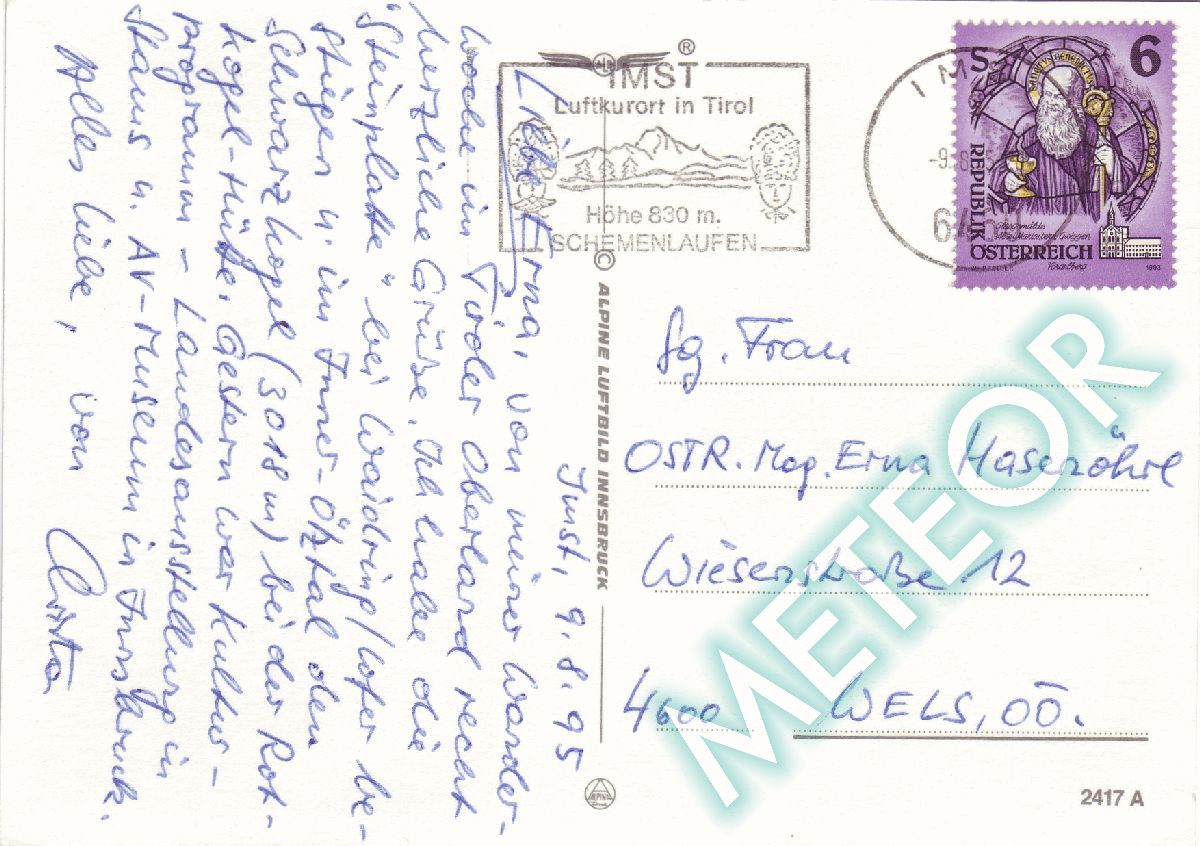 Imst, 9.8.95
Liebe Erna, von meiner Wander-
woche im Tiroler Oberland recht
herzliche Grüße. Ich habe die
"Steinplatte" bei Waidring/Lofer be-
stiegen u. im Inner-Ötztal den
Schwarzkogel (3018 m) bei der Rot-
kogel-Hütte. Gestern war Kultur-
programm – Landesausstellung in
Stams u. AV-Museum in Innsbruck.
Alles Liebe, von
Christa
®
IMST
Luftkurort in Tirol
Höhe 830 m.
SCHEMENLAUFEN
© ALPINE LUFTBILD INNSBRUCK
S 6
REPUBLIK
ÖSTERREICH
Vorarlberg
1993
Sg. Frau
OSTR. Mag. Erna Haseröhrl
Wieserstraße 12
4600 WELS, OÖ.
METEOR
2417 A